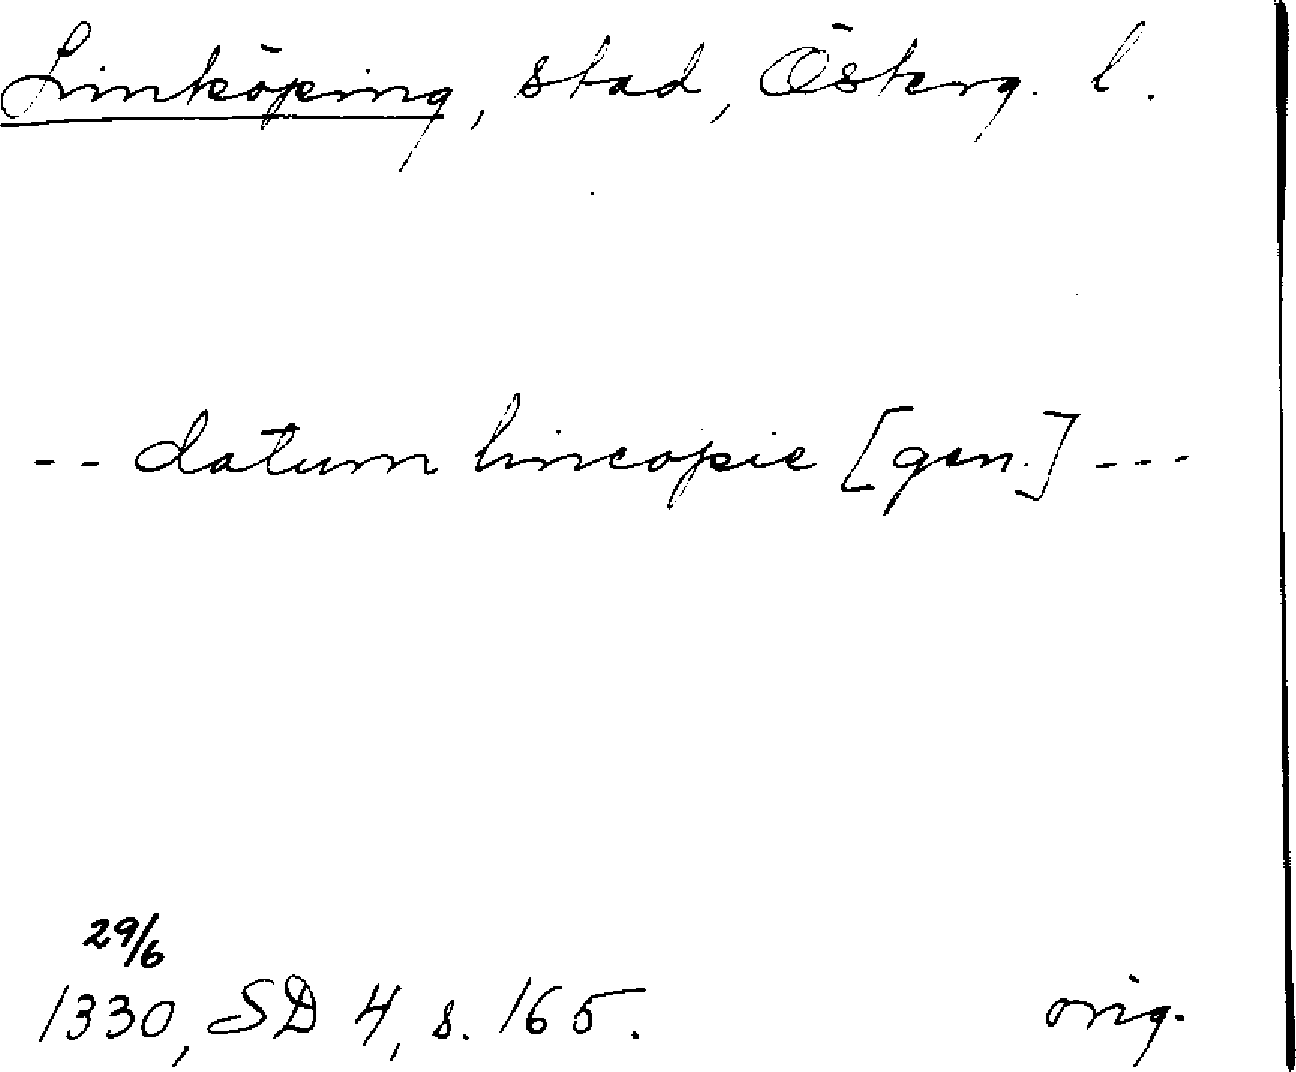 Linköping, stad, Österg. l.
-- datum lincopie [gen.] ---
29/6
1330, SD 4, s. 165. orig.